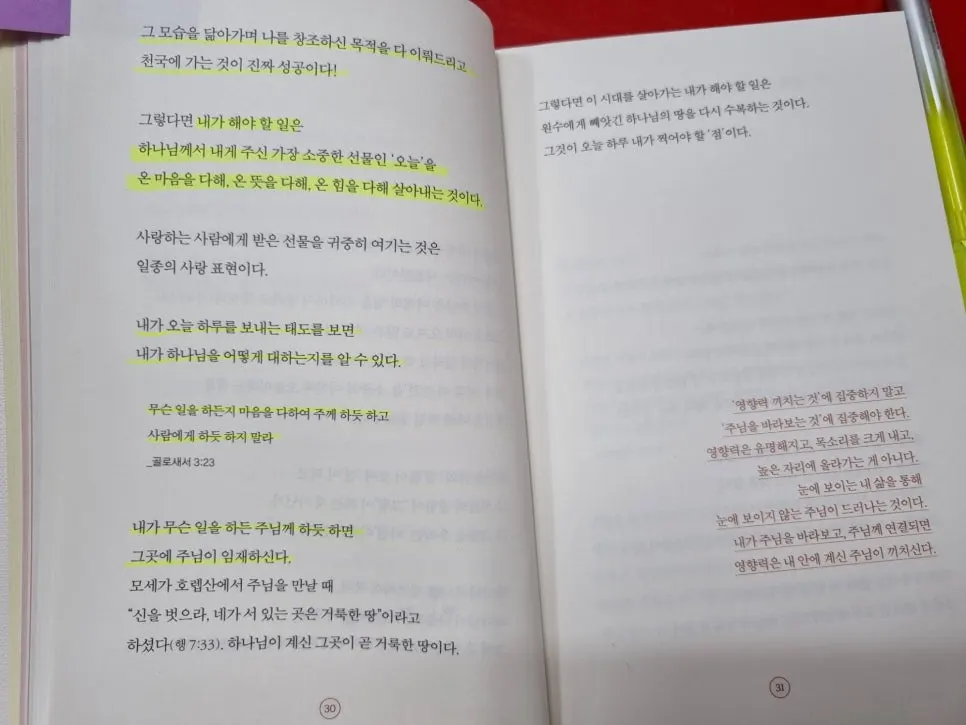 그 모습을 닮아가며 나를 창조하신 목적을 다 이뤄드리고
천국에 가는 것이 진짜 성공이다!
그렇다면 내가 해야 할 일은
하나님께서 내게 주신 가장 소중한 선물인 ‘오늘’을
온 마음을 다해, 온 뜻을 다해, 온 힘을 다해 살아내는 것이다.
사랑하는 사람에게 받은 선물을 귀중히 여기는 것은
일종의 사랑 표현이다.
내가 오늘 하루를 보내는 태도를 보면
내가 하나님을 어떻게 대하는지를 알 수 있다.
무슨 일을 하든지 마음을 다하여 주께 하듯 하고
사람에게 하듯 하지 말라
_골로새서 3:23
내가 무슨 일을 하든 주님께 하듯 하면
그곳에 주님이 임재하신다.
모세가 호렙산에서 주님을 만날 때
“신을 벗으라, 네가 서 있는 곳은 거룩한 땅”이라고
하셨다(행 7:33). 하나님이 계신 그곳이 곧 거룩한 땅이다.
30
그렇다면 이 시대를 살아가는 내가 해야 할 일은
원수에게 빼앗긴 하나님의 땅을 다시 수복하는 것이다.
그것이 오늘 하루 내가 찍어야 할 ‘점’이다.
‘영향력 끼치는 것’에 집중하지 말고
‘주님을 바라보는 것’에 집중해야 한다.
영향력은 유명해지고, 목소리를 크게 내고,
높은 자리에 올라가는 게 아니다.
눈에 보이는 내 삶을 통해
눈에 보이지 않는 주님이 드러나는 것이다.
내가 주님을 바라보고, 주님께 연결되면
영향력은 내 안에 계신 주님이 끼치신다.
31